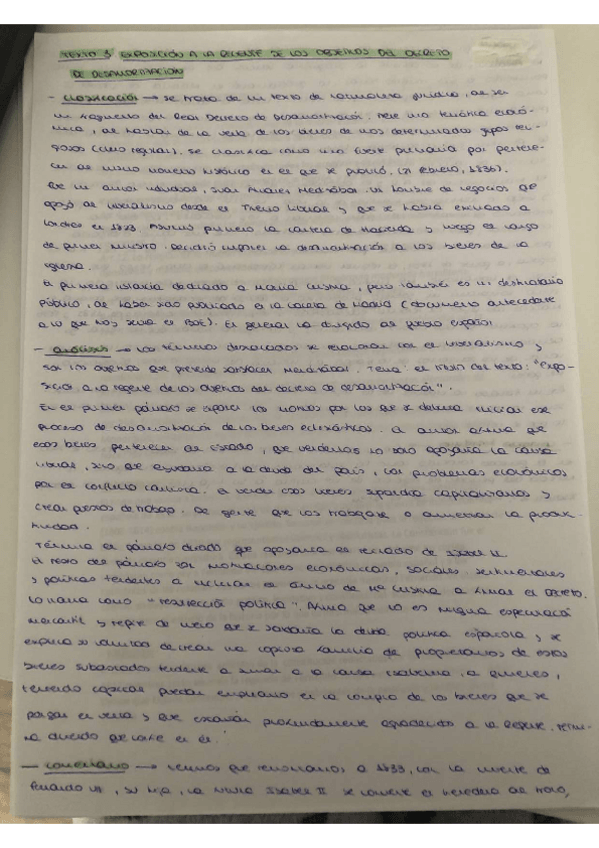 TEXTO 3 EXPOSICIÓN A LA REGENTE DE LOS OBJETIVOS DEL DECRETO
DE DESAMORTIZACIÓN
- Clasificación → se trata de un texto de naturaleza jurídica, al ser
un fragmento del Real Decreto de Desamortización. Tiene una temática econó-
mica, al hablar de la venta de los bienes de unos determinados grupos reli-
giosos (clero regular). Se clasifica como una fuente primaria por pertene-
cer al mismo momento histórico en el que se produjo. (21 febrero, 1836).
un autor individual, Juan Álvarez Mendizábal. Un hombre de negocios que
apoyó al liberalismo desde el Trienio Liberal y que se había exiliado a
Londres en 1823. Asumió primero la cartera de Hacienda y luego el cargo
de primer ministro. Decidió emprender la desamortización a los bienes de la
iglesia.
primera instancia dedicado a María Cristina, pero también es un destinatario
público, al haber sido publicado en la Gaceta de Madrid (documento antecedente
a lo que hoy sería el BOE). En general va dirigido al pueblo español
- Análisis → Los términos destacados se relacionan con el liberalismo y
son los objetivos que pretende satisfacer Mendizábal. Tema: el título del texto: "Expo-
sición a la regente de los objetivos del decreto de desamortización".
En el primer párrafo se exponen los motivos por los que se debería iniciar ese
proceso de desamortización de los bienes eclesiásticos. El autor afirma que
esos bienes pertenecen al estado, que venderlos no solo apoyaría la causa
liberal, sino que ayudaría a la deuda del país, con problemas económicos
por el conflicto carlista. El vender esos bienes supondría capitalizarlos y
crear puestos de trabajo, de gente que los trabajase o aumentar la produc-
tividad.
Termina el párrafo diciendo que apoyaría el reinado de Isabel II.
El resto del párrafo son motivaciones económicas, sociales, sentimentales
y políticas tendentes a inclinar el ánimo de Mª Cristina a firmar el decreto.
Lo llama como "resurrección política". Afirma que no es ninguna especulación
mercantil y repite de nuevo que se saldaría la deuda pública española y se
explica su voluntad de crear una copiosa familia de propietarios de estos
bienes subastados tendente a amar a la causa isabelina, a quienes,
teniendo capital puedan emplearlo en la compra de los bienes que se
pongan en venta y que estarán profundamente agradecidos a la Regente. Termi-
na diciendo que confíe en él.
- Comentario → Tenemos que remontarnos a 1833, con la muerte de
Fernando VII, su hija, la niña Isabel II se convierte en heredera al trono,